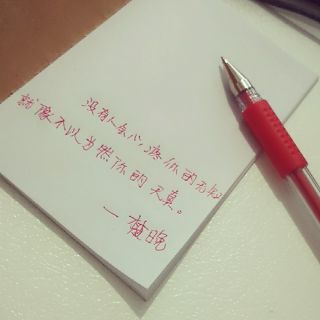 没有人会心疼你的无知
就像不以为然你的天真。
—楚晚